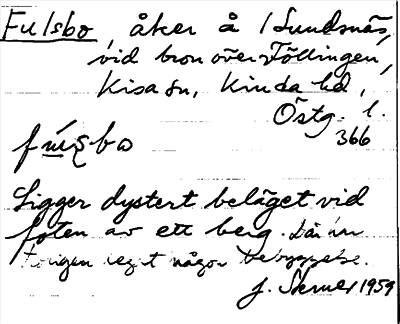 Fulsbo, åker å /Sundsnäs,
vid bron över Föllingen,
Kisa sn, Kinda hd,
Östg. l.
366
Ligger dystert beläget vid
foten av ett berg. Där
legat någon bebyggelse.
J. Skruer 1959